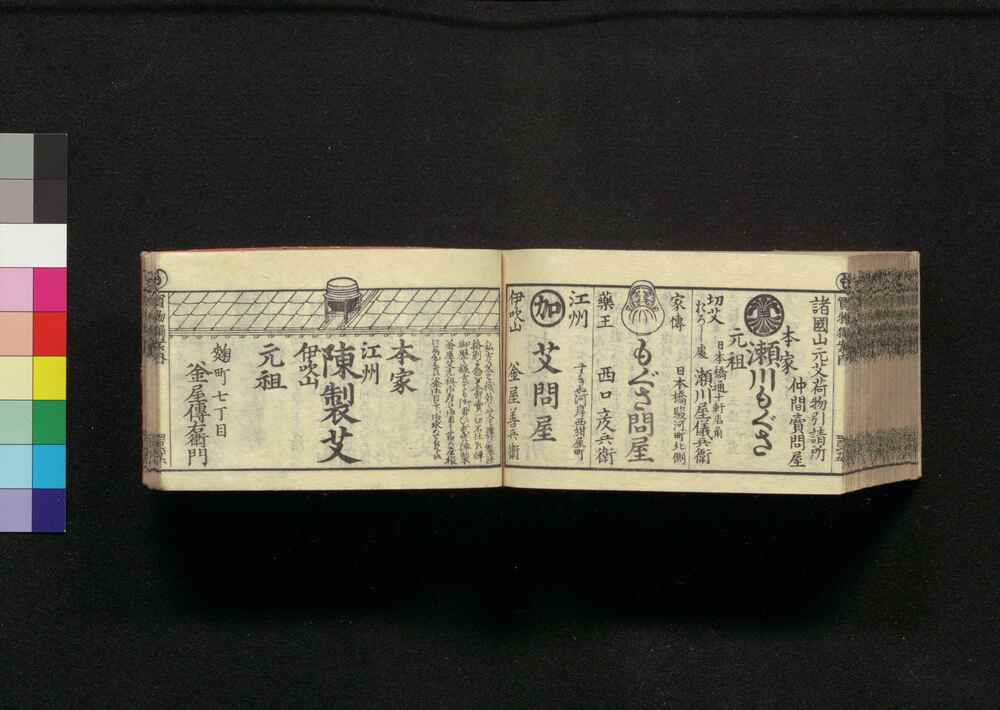 諸國山元艾荷物引請所
仲間賣問屋
本家
瀬川もぐさ
元祖
日本橋通十軒店角
切艾
おろし處
瀬川屋儀兵衛
家傳
日本橋駿河町北側
もぐさ問屋
藥王
西口彦兵衛
江州
すきや河岸西紺屋町
加
艾問屋
伊吹山
釜屋善兵衛
本家
江州
陳製艾
伊吹山
元祖
麹町七丁目
釜屋傳右衛門